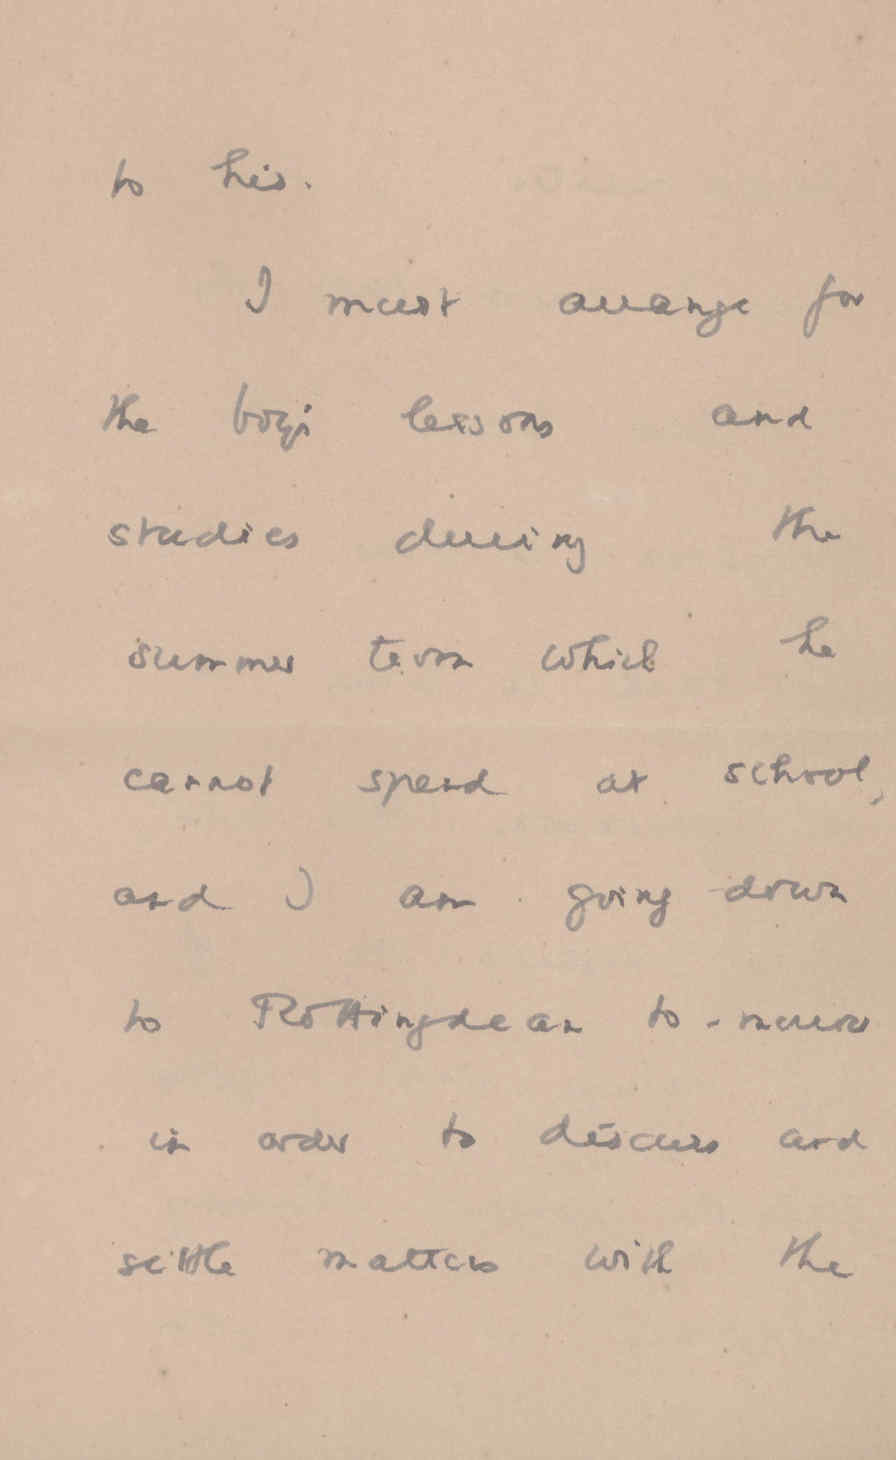 to his.
I must arrange for
the boy's lessons and
studies during the
summer term which he
cannot spend at school,
and I am going down
to Rottingdean to-morrow
in order to discuss and
settle matters with the